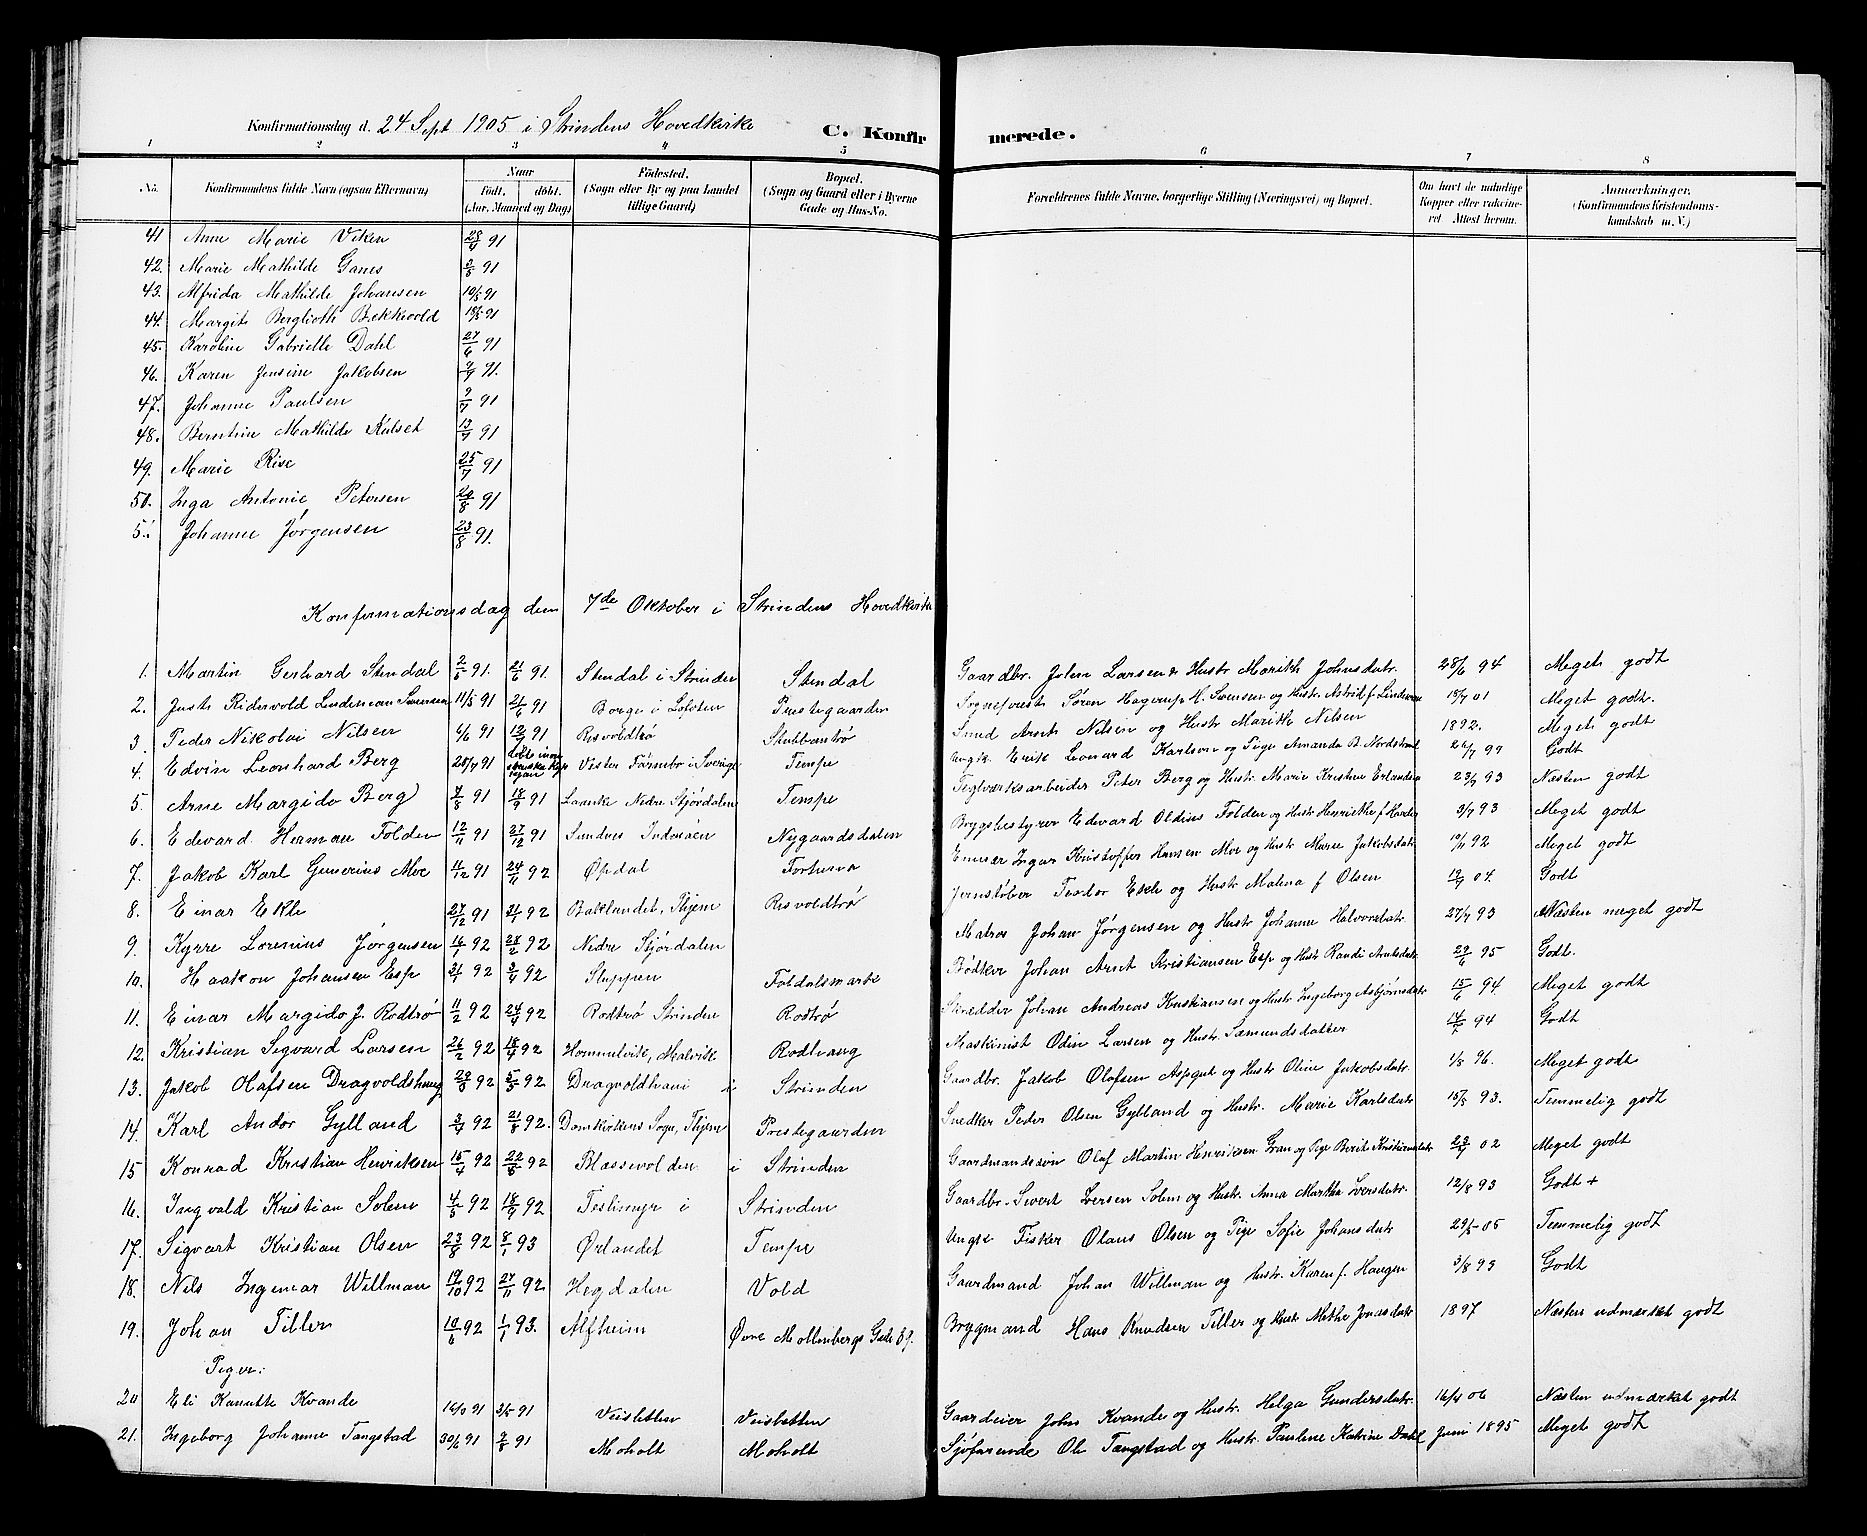 Konfirmationsdag d. 24 Sept 1905 i Strindens Hovedkirke C. Konfirmerede.
1 2 3 4 5 6 7 8
No. Konfirmandens fulde Navn (ogsaa Efternavn) Naar født, døbt. (Aar, Maaned og Dag) Fødested. (Sogn eller By og paa Landet tillige Gaard) Bopæl. (Sogn og Gaard eller i Byerne Gade og Hus-No. Forældrenes fulde Navne, borgerlige Stilling (Næringsvei) og Bopæl. Om havt de naturlige Kopper eller vaccineret. Attest herom. Anmærkninger. (Konfirmandens Kristendomskundskab m. V.)
41 Anne Marie Viken 91
42. Marie Mathilde Ganes 91
43. Alfrida Mathilde Johansen 10/5 91
44. Margit Berglioth Bekkvold 91
45. Karoline Gabrielle Dahl 27/6 91
46. Karen Jensine Jakobsen 91.
47. Johanne Paulsen 9/7 91
48. Berntine Mathilde Kulset 13/7 91
49. Marie Rise 25/7 91
50. Inga Antonie Petersen 20/8 91
51 Johanne Jørgensen 23/8 91.
Konfirmationsdag den 7de Oktober i Strindens Hovedkirke
1. Martin Gerhard Stendal 91. 21/6 91. Stendal i Strinden Stendal Gaardbr. John Larsen & Hustr Marith Johnsdatr. 28/6 94 Meget godt
2. Just Riddervold Lindeman Svensen 11/5 91 21/6 91 Borge i Lofoten Prestegaarden Sogneprest Søren Hagerup H. Svensen og Hustr. Astrid f. Lindeman 01 Meget godt.
3. Peder Nikolai Nilsen 6/6 91 12/7 91 Risvoldtrø Stubbantrø Smed Arnt Nilsen og Hustr Marith Nilsen 1892. Meget godt
4. Edvin Leonhard Berg 91 Vester Färnebo i Sverige Tempe Ungk. Erik Leonard Karlson og Pige Amanda B. Nordstrøm Godt
5. Arne Margido Berg 91 18/9 91 Laanke Nedre Stjørdalen Tempe Teglværksarbeider Peter Berg og Hustr. Marie Kristine Erlandsen 93 Næsten godt
6. Edvard Herman Folden 12/11 91 27/12 91 Sundnes Inderøen Nygaardsdalen Brygsbestyrer Edvard Oldius Folden og Hustr Henrikke f. 3/7 93 Meget godt
7. Jakob Karl Gunerius Moe 91 24/11 92 Opdal Fortuna Ingar Kristoffer Hansen Moe og Hustr Marie Jakobsdatr 92 Meget godt
8. Einar Ekle 27/12 91 92 Baklandet, Thjem Risvoldtrø Jernstøber Teodor Ekle og Hustr Malena f Olsen 04. Godt
9. Kyrre Lorenius Jørgensen 92 28/2 92 Nedre Stjørdalen Matros Johan Jørgensen og Hustr Johanne Halvorsdatr 27/7 93 Næsten meget godt
10. Haakon Johansen Esp 92 92 Sluppen Foldalsmarke Bødker Johan Arnt Kristiansen Esp og Hustr Randi Arntsdatr 29/6 95 Godt.
11. Einar Margido J. Rodtrø 11/2 92 24/4 92 Rodtrø Strinden Rodtrø Skredder Johan Andreas Kristiansen og Hustr Ingeborg Asbjørnsdatr 15/6 94 Meget godt
12. Kristian Sigvard Larsen 26/2 92 18/4 92 Hommelvik, Malvik Rodtvang Maskinist Odin Larsen og Hustr. Sæmundsdatter 94 Godt
13. Jakob Olafsen Dragvoldshaug 92 92 Dragvoldhani i Strinden Gaardbr. Jakob Olafsen Aspgut og Hustr Oline Jakobsdatr. 1/8 96. Meget godt
14. Karl Andor Gylland 92 21/8 92. Domkirkens Sogn, Thjem Prestegaarden Snedker Peder Olsen Gylland og Hustr. Marie Karlsdatr 15/8 93. Temmelig godt
15 Konrad Kristian Henriksen 15/4 92 22/5 92 Blassevolden i Strinden Gaardmandssøn Olaf Martin Henriksen Gran og Pige Berit Kristiansdatr 02 Meget godt
16. Ingvald Kristian Solem 4/5 92 18/9 92 Teslimyr i Strinden Gaardbr. Sivert Iversen Solem og Hustr. Anna Martha Iversdatr. 12/8 93 Godt +
17. Sigvart Kristian Olsen 23/8 92 8/1 93 Ørlandet Tempe Ungk. Fisker Olaus Olsen og Pige Sofie Johansdatr 05 Temmelig godt
18. Nils Ingemar Willman 19/10 92 27/11 92 Hegdalen Vold Gaardmand Johan Willman og Hustr. Karen f. Haugen 3/8 93 Godt
19. Johan Tiller 92 1/1 93. Alfheim Øvre Mollenbergs Gade Brygmand Hans Knudsen Tiller og Hustr Mette Jonasdatr 1897 Næsten udmærket godt
Piger:
20 Eli Kanutte Kvande 91 3/5 91 Veisletten Veisletten Gaardeier John Kvande og Hustr. Helga Gundersdatr. 06 Næsten udmærket godt
21. Ingeborg Johanne Tangstad 30/6 91 91 Moholt Moholt Sjøfarende Ole Tangstad og Hustr. Pauline Katrine Dahl Juni 1895 Meget godt